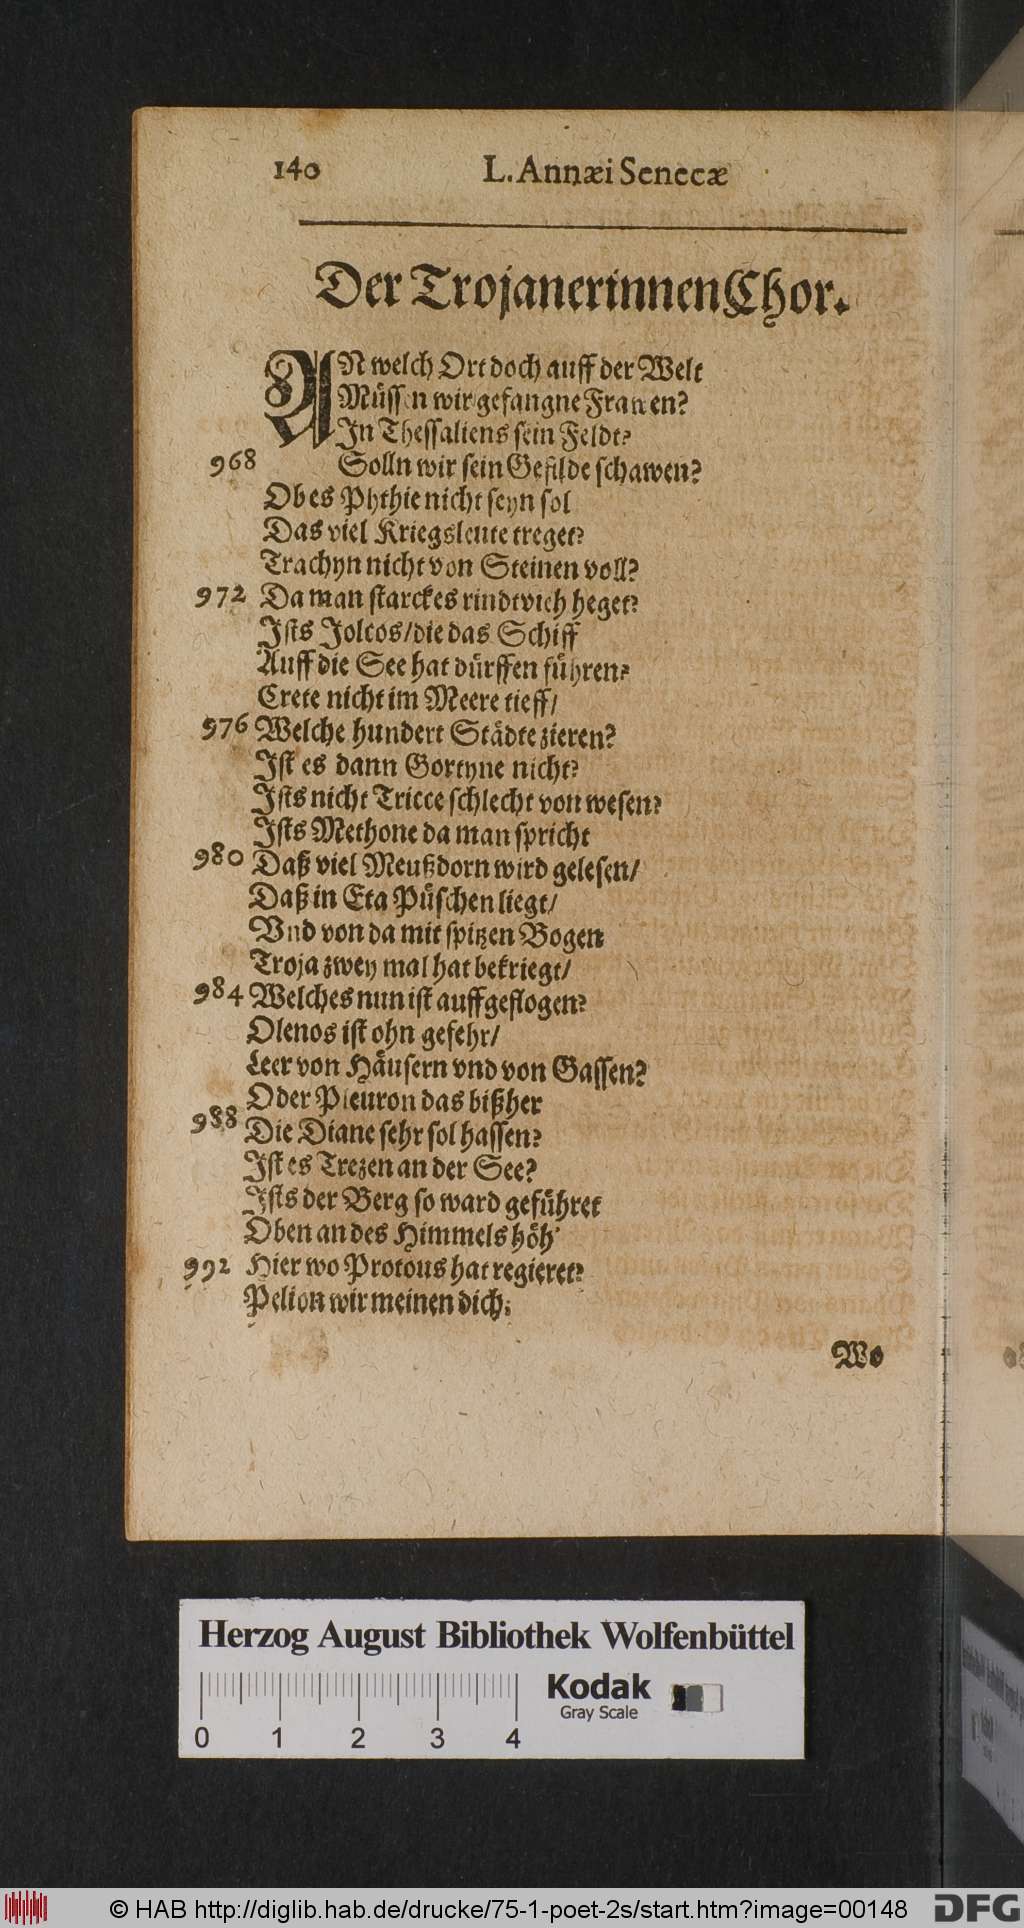 140 L. Annæi Senecæ
Der Trojanerinnen Chor.
AN welch Ort doch auff der Welt
Müssen wir gefangne Frawen?
In Thessaliens sein Feldt?
968 Solln wir sein Gefilde schawen?
Ob es Phthie nicht seyn sol
Das viel Kriegsleute treget?
Trachyn nicht von Steinen voll?
972 Da man starckes rindtvieh heget?
Ists Jolcos/die das Schiff
Auff die See hat dürffen führen?
Crete nicht im Meere tieff/
976 Welche hundert Städte zieren?
Ist es dann Gortyne nicht?
Ists nicht Tricce schlecht von wesen?
Ists Methone da man spricht
980 Daß viel Meußdorn wird gelesen/
Daß in Eta Püschen liegt/
Vnd von da mit spitzen Bogen
Troja zwey mal hat bekriegt/
984 Welches nun ist auffgeflogen?
Olenos ist ohn gefehr/
Leer von Häusern vnd von Gassen?
Oder Pleuron das bißher
988 Die Diane sehr sol hassen?
Ist es Trezen an der See?
Ists der Berg so ward geführet
Oben an des Himmels höh'
992 Hier wo Protous hat regieret?
Pelion wir meinen dich;
Wo
Herzog August Bibliothek Wolfenbüttel
Kodak
Gray Scale
0 1 2 3 4
© HAB http://diglib.hab.de/drucke/75-1-poet-2s/start.htm?image=00148
DFG